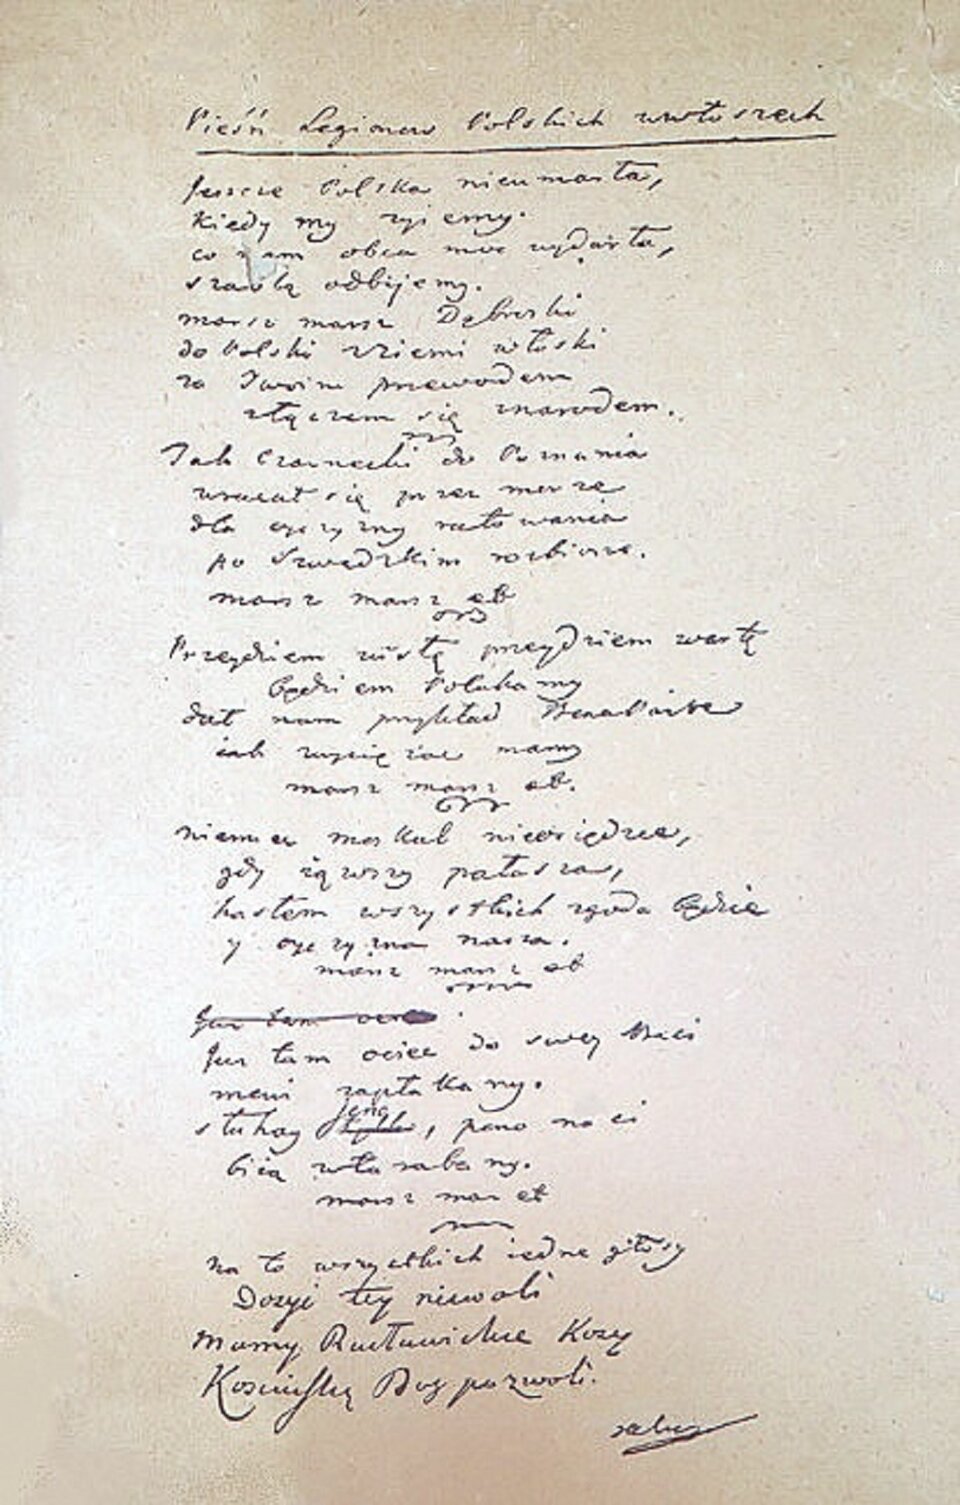 Pieśń Legionow Polskich wewłoszech
Jeszcze Polska nieumarła,
kiedy my żyiemy.
co nam obca moc wydarła,
szablą odbijemy.
marsz marsz Dąbroski
do Polski zziemi włoski
za Twoim przewodem
złączem się znarodem.
Jak Czarnecki do Poznania
wracał się przez morze
dla oyczyzny ratowania
po Szwedzkim rozbiorze.
marsz marsz etc
Przeydziem wisłę przeydziem wartę
będziem Polakamy
dał nam przykład Bonaparte
iak zwyciężać mamy
marsz marsz etc.
niemiec moskal nieosiędzie,
gdy iąwszy pałasza,
hasłem wszystkich zgoda będzie
y oyczyzna nasza.
marsz marsz etc
Juz tam ociec
Juz tam ociec do swey Basi
mowi zapłakany.
słuchay Jeno, pono nasi
biią wtarabany.
marsz mar etc
na to wszystkich iedne głosy
Dosyć tey niewoli
mamy Racławickie Kosy
Kosciuszkę Bog pozwoli.